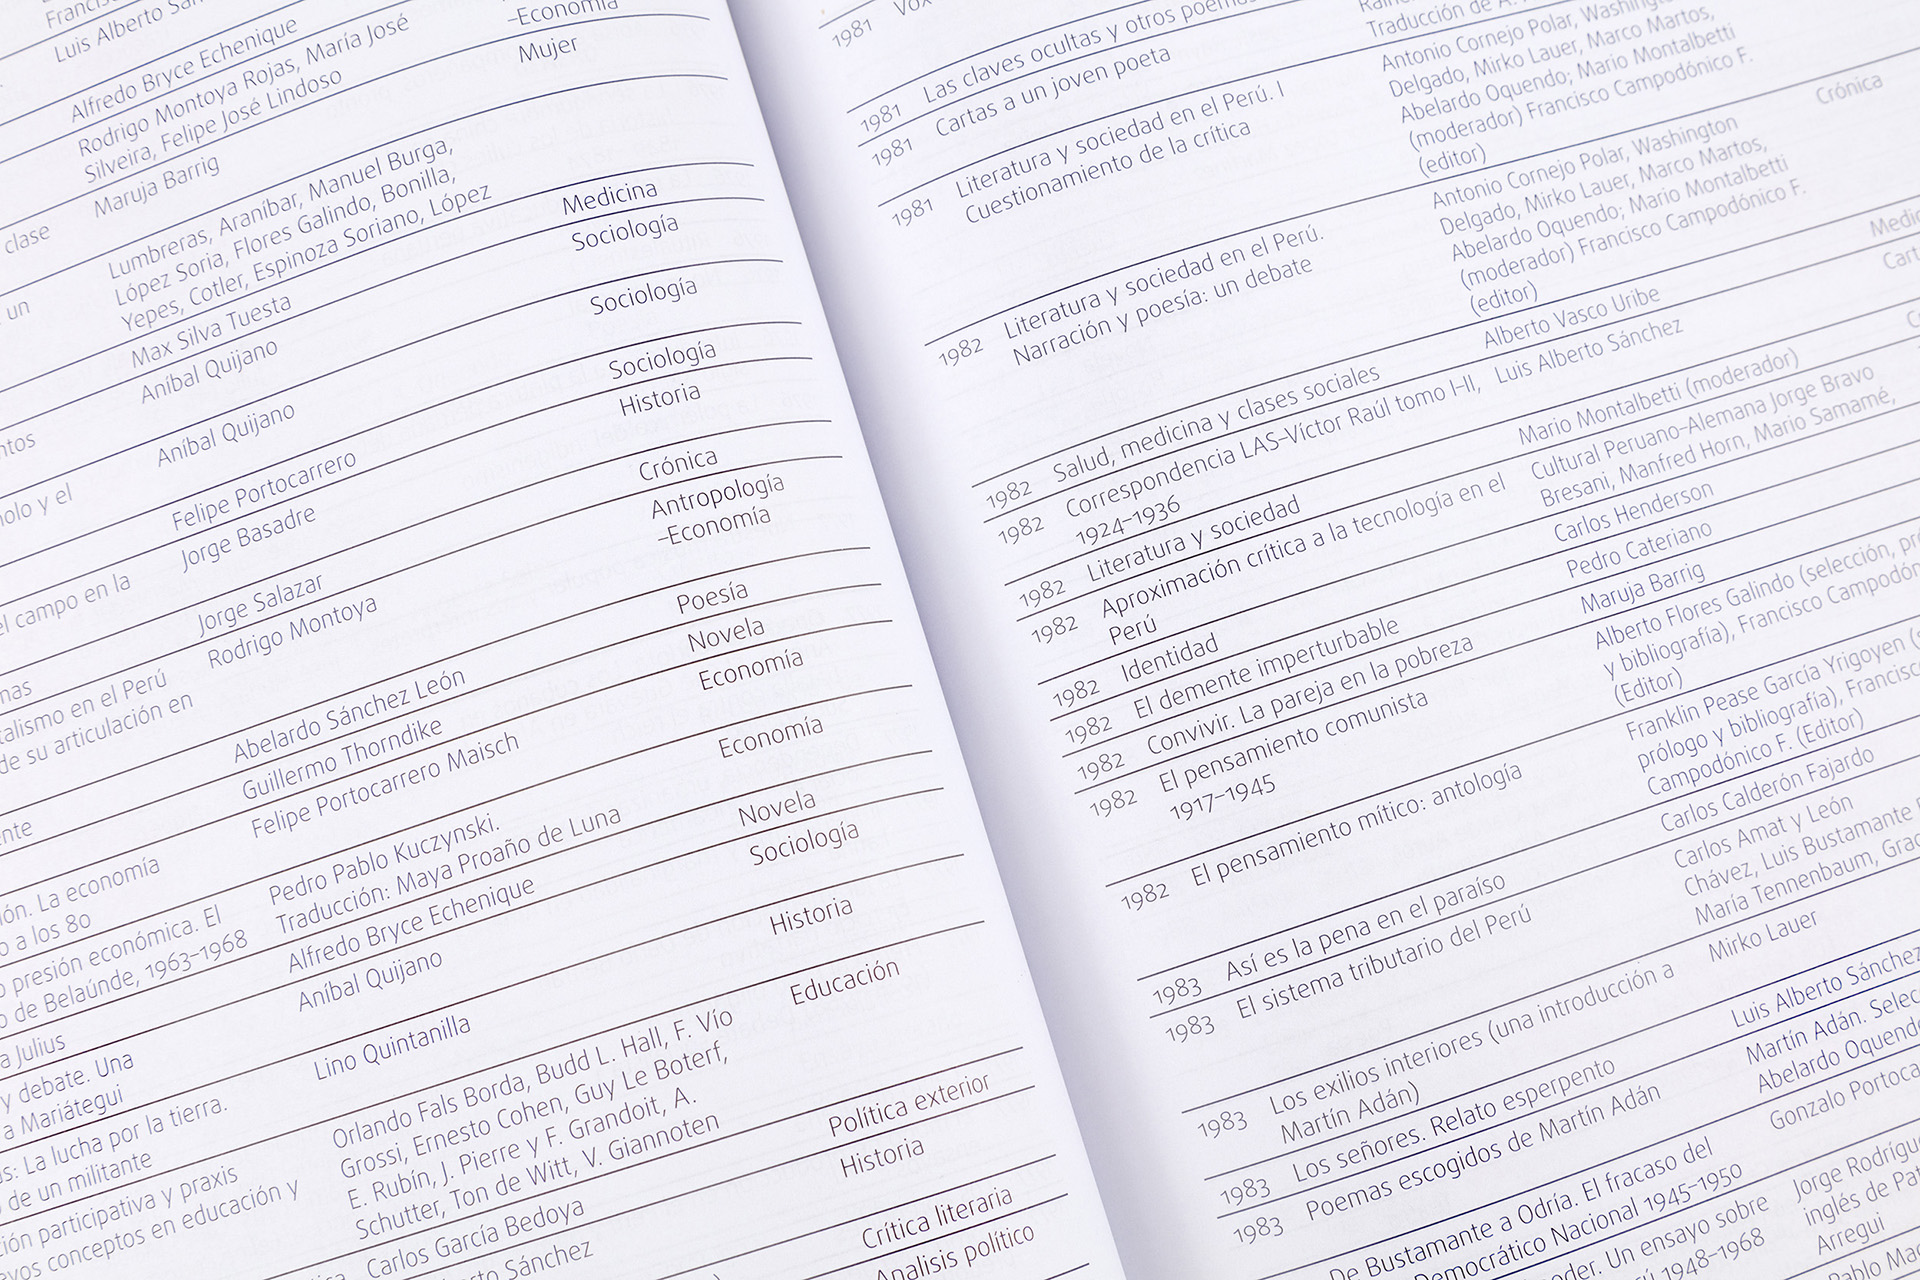 Luis Alberto
Alfredo Bryce Echenique
–Economía
Rodrigo Montoya Rojas, María José
Silveira, Felipe José Lindoso
Mujer
clase
Maruja Barrig
un
Lumbreras, Araníbar, Manuel Burga,
López Soria, Flores Galindo, Bonilla,
Yepes, Cotler, Espinoza Soriano, López
Medicina
Max Silva Tuesta
Sociología
Aníbal Quijano
Sociología
Aníbal Quijano
Sociología
y el
Felipe Portocarrero
Historia
campo en la
Jorge Basadre
Crónica
Jorge Salazar
Antropología
–Economía
en el Perú
de su articulación en
Rodrigo Montoya
Poesía
Abelardo Sánchez León
Novela
Guillermo Thorndike
Economía
Felipe Portocarrero Maisch
La economía
a los 80
Economía
presión económica. El
de Belaúnde, 1963–1968
Pedro Pablo Kuczynski.
Traducción: Maya Proaño de Luna
Novela
Julius
Alfredo Bryce Echenique
Sociología
y debate. Una
a Mariátegui
Aníbal Quijano
Historia
La lucha por la tierra.
de un militante
Lino Quintanilla
Educación
participativa y praxis
conceptos en educación y
Orlando Fals Borda, Budd L. Hall, F. Vío
Grossi, Ernesto Cohen, Guy Le Boterf,
E. Rubín, J. Pierre y F. Grandoit, A.
Schutter, Ton de Witt, V. Giannoten
Política exterior
Carlos García Bedoya
Historia
Sánchez
Crítica literaria
Analisis político
1981
1981 Las claves ocultas y otros poemas
1981 Cartas a un joven poeta
Traducción de A.
1981 Literatura y sociedad en el Perú. I
Cuestionamiento de la crítica
Antonio Cornejo Polar, Washington
Delgado, Mirko Lauer, Marco Martos,
Abelardo Oquendo; Mario Montalbetti
(moderador) Francisco Campodónico F.
(editor)
Crónica
1982 Literatura y sociedad en el Perú.
Narración y poesía: un debate
Antonio Cornejo Polar, Washington
Delgado, Mirko Lauer, Marco Martos,
Abelardo Oquendo; Mario Montalbetti
(moderador) Francisco Campodónico F.
(editor)
1982 Salud, medicina y clases sociales
Alberto Vasco Uribe
1982 Correspondencia LAS–Víctor Raúl tomo I–II,
1924–1936
Luis Alberto Sánchez
1982 Literatura y sociedad
Mario Montalbetti (moderador)
1982 Aproximación crítica a la tecnología en el
Perú
Cultural Peruano–Alemana Jorge Bravo
Bresani, Manfred Horn, Mario Samamé,
1982 Identidad
Carlos Henderson
1982 El demente imperturbable
Pedro Cateriano
1982 Convivir. La pareja en la pobreza
Maruja Barrig
1982 El pensamiento comunista
1917–1945
Alberto Flores Galindo (selección,
y bibliografía), Francisco
(Editor)
1982 El pensamiento mítico: antología
Franklin Pease García Yrigoyen
prólogo y bibliografía),
Campodónico F. (Editor)
1983 Así es la pena en el paraíso
Carlos Calderón Fajardo
1983 El sistema tributario del Perú
Carlos Amat y León
Chávez, Luis Bustamante
María Tennenbaum,
1983 Los exilios interiores (una introducción a
Martín Adán)
Mirko Lauer
1983 Los señores. Relato esperpento
Luis Alberto Sánchez
1983 Poemas escogidos de Martín Adán
Martín Adán.
Abelardo Oquendo
De Bustamante a Odría. El fracaso del
Democrático Nacional 1945–1950
Gonzalo
Un ensayo sobre
1948–1968
Jorge
inglés de
Arregui
Pablo